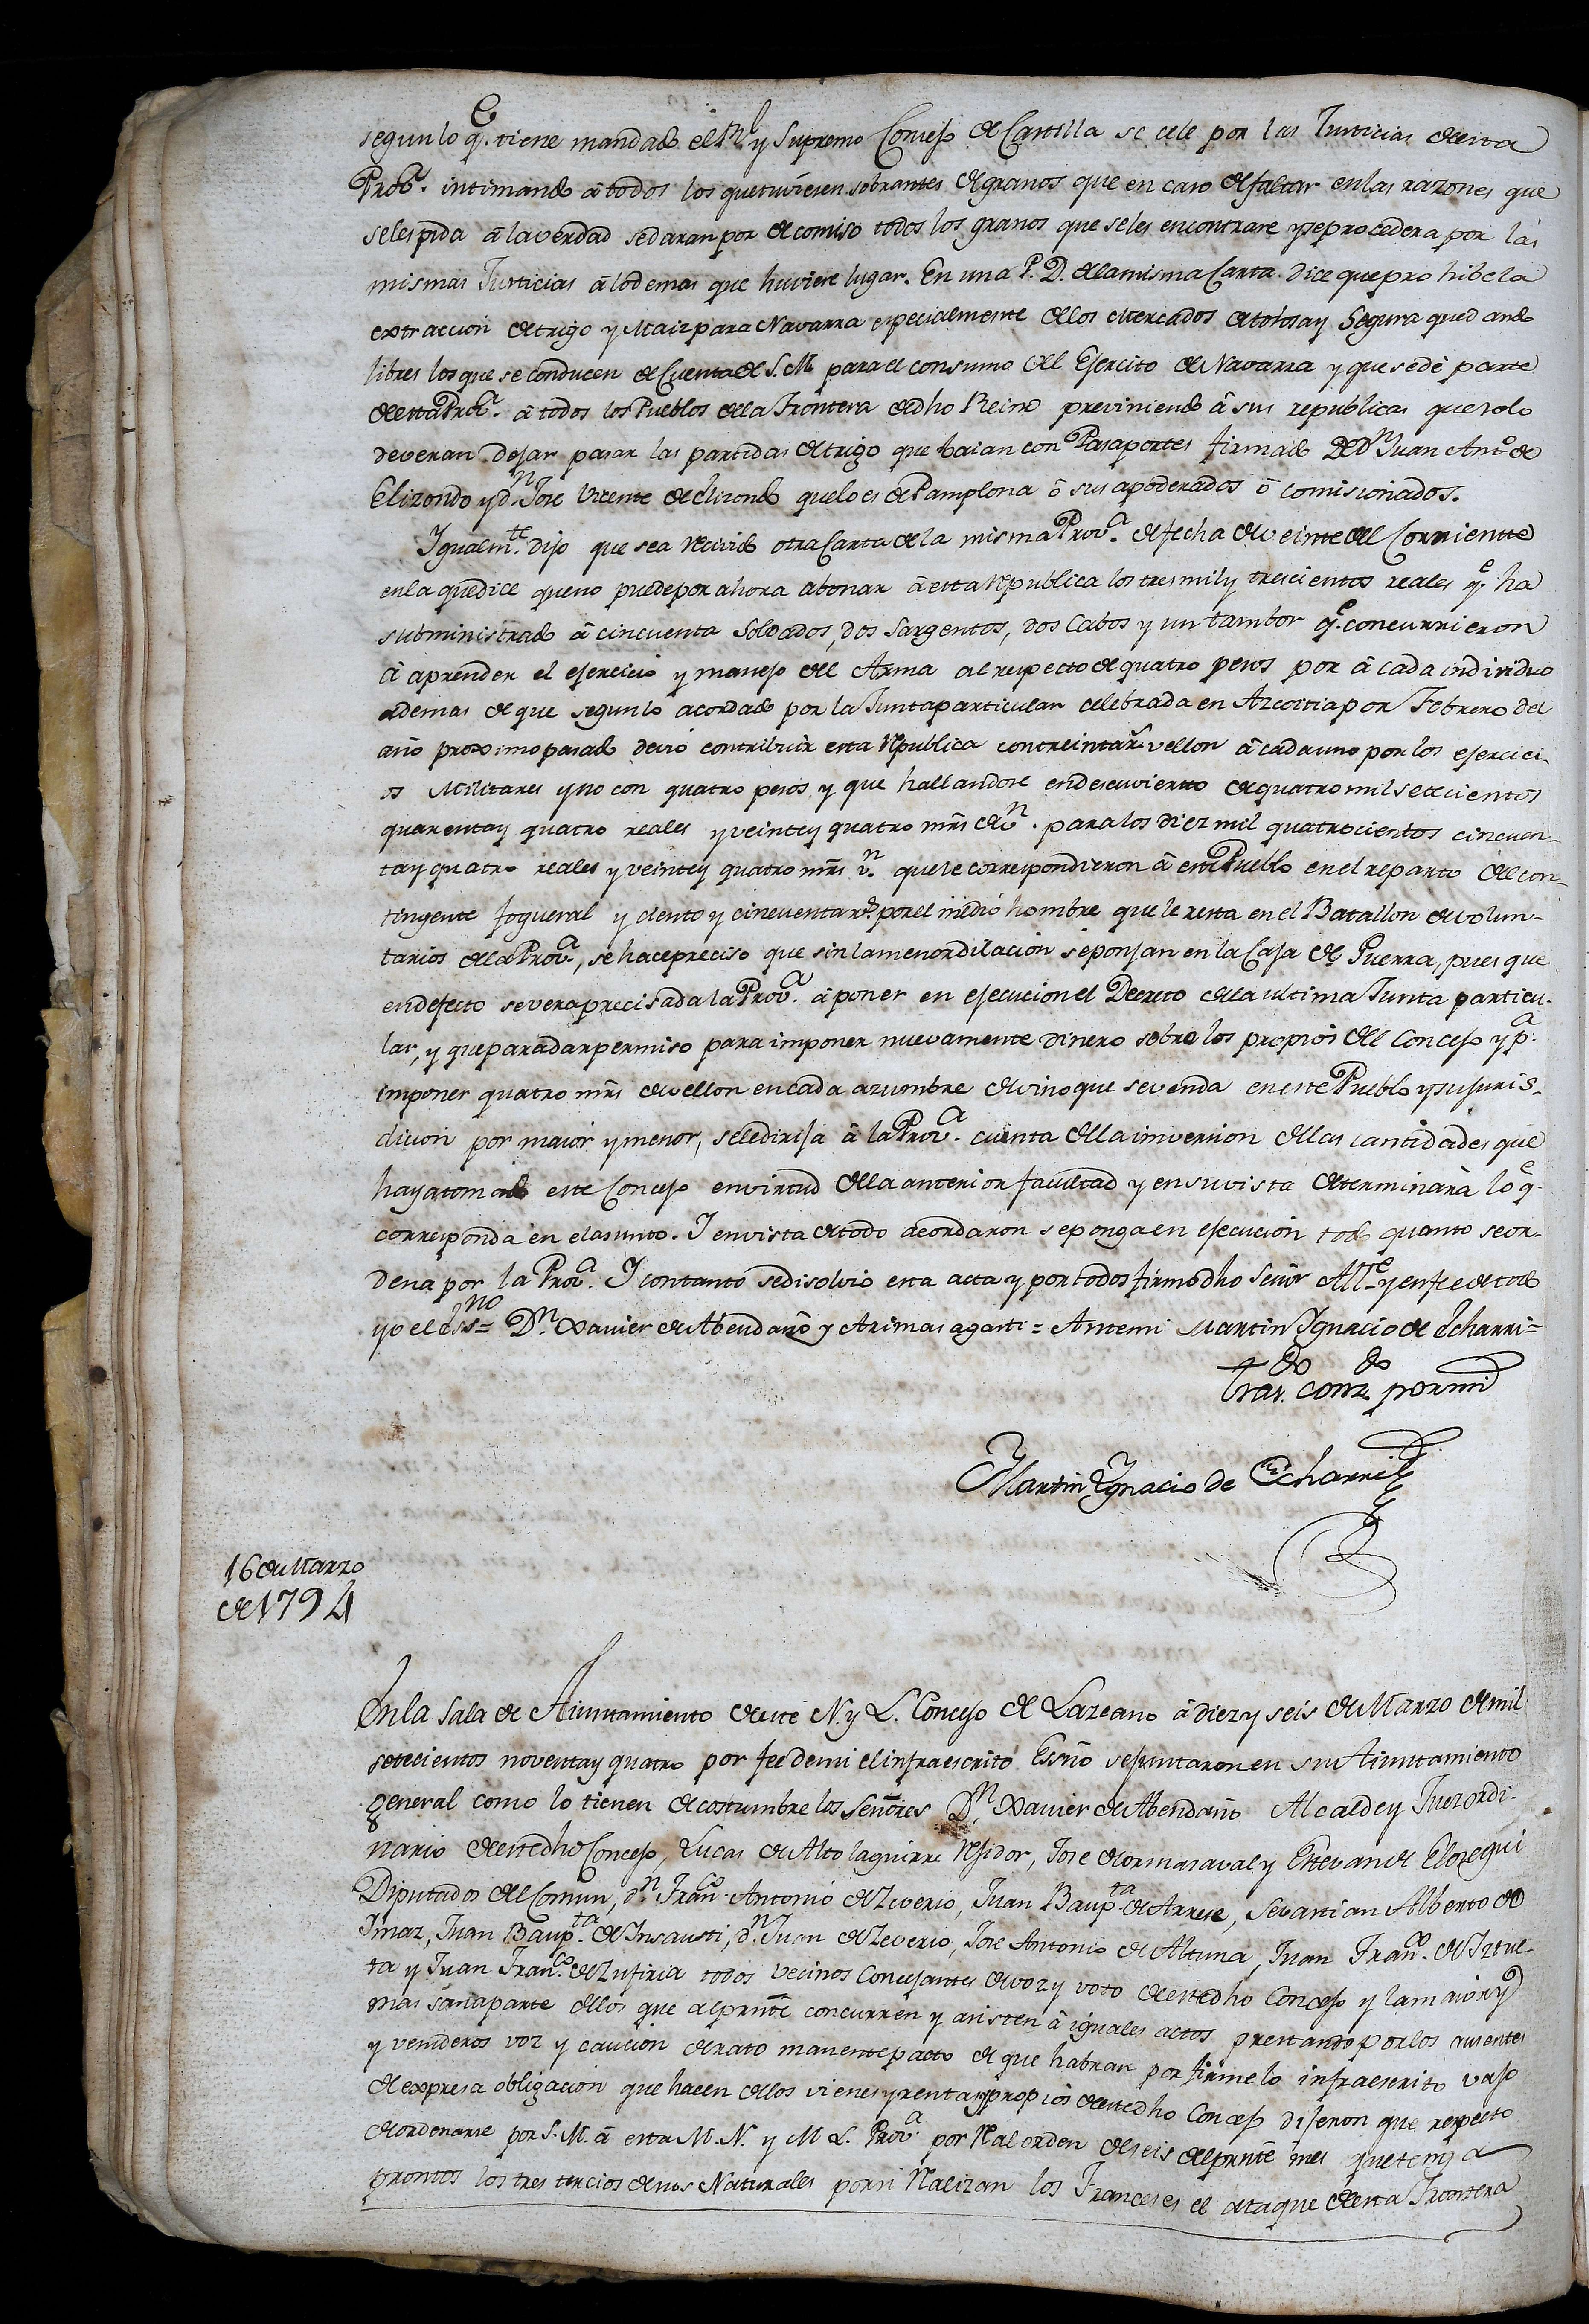 segun lo q.e tiene mandado el Rl. y Supremo Consejo de Castilla se cele por las Justicias de esta
Prov.a intimando â todos los que tuviesen sobrantes de granos que en caso de faltar en las razones que
se les pida â la verdad se daran por decomiso todos los granos que se les encontrare y se procedera por las
mismas Justicias â lo demas que huviere lugar. En una P. D. de la misma Carta dice que prohibe la
extraccion de trigo y Maiz para Navarra especialmente de los Mercados de tolosa y Segura quedando
libres los que se conducen de Cuenta de S. M. para el consumo del Ejercito de Navarra y que se dè parte
de esta Prov.a â todos los Pueblos de la Frontera de dho Reino previniendo â sus republicas que solo
deveran dejar pasar las partidas de trigo que baian con Pasaportes firmado de Dn Juan Ant.o de
Elizondo y dn Jose Vicente de Elizondo que lo es de Pamplona ô sus apoderados ô comisionados.
Igualm.te Dijo que se a recivido otra Carta de la misma Prov.a de fecha de veinte del Corriente
en la que dice que no puede por ahora abonar â esta republica los tres mil y trescientos reales q.e ha
subministrado â cincuenta Soldados, dos Sargentos, dos Cabos y un tambor q.e concurrieron
â aprender el ejercicio y manejo del Arma al respecto de quatro pesos por â cada individuo
ademas de que segun lo acordado por la Junta particular celebrada en Azcoitia por Febrero del
año proximo pasado deviò contribuir esta republica con treinta rs. vellon â cada uno por los ejercici-
os Militares y no con quatro pesos y que hallandose en descuvierto de quatro mil setecientos
quarenta y quatro reales y veinte y quatro mrs de vn. para los diez mil quatrocientos cincuen-
ta y quatro reales y veinte y quatro mrs vn. que le correspondieron â este Pueblo en el reparto del con-
tingente fogueral y ciento y cincuenta rs. por el medio hombre que le resta en el Batallon de volun-
tarios de la Prov.a, se hace preciso que sin la menor dilacion se ponsan en la Caja de Guerra, pues que
en defecto se vera precisada la Prov.a â poner en ejecucion el Decreto de la ultima Junta particu-
lar, y que para dar permiso para imponer nuevamente dinero sobre los propios del Concejo y p.a
imponer quatro mrs de vellon en cada azumbre de vino que se venda en este Pueblo y su juris-
dicion por maior y menor, se le dirija â la Prov.a cuenta de la inversion de las cantidades que
haya tomado este Concejo en virtud de la anterior facultad y en su vista determinarà lo q.e
corresponda en el asunto. I en vista de todo acordaron se ponga en ejecucion todo quanto se or-
dena por la Prov.a I con tanto se disolvio esta acta y por todos firmò dho Señor Alle. y en fee de todo
yo el Ess.no = Dn. Xavier de Abendaño y Arimasagasti = Ante mi Martin Ygnacio de Echarri =
tras.do conz.do por mi
Martin Ygnacio de Echarri
16 de Marzo
de 1794
En la Sala de Aiuntamiento de este N. y L. Concejo de Lazcano â diez y seis de Marzo de mil
setecientos noventa y quatro por fee de mi el infraescrito Essno se juntaron en su Aiuntamiento
general como lo tienen de costumbre los Señores Dn. Xavier de Abendaño Alcalde y Juez ordi-
nario de este dho Concejo, Lucas de Altolaguirre rejidor, Jose de Ormasaval y Estevan de Elosegui
Diputados del Comun, dn. Fran.co Antonio de Zeverio, Juan Baup.ta de Arrese, Sevastian Alberto de
Imaz, Juan Baup.ta de Insausti, dn. Juan de Zeverio, Jose Antonio de Altuna, Juan Fran.co de Iztue-
ta y Juan Fran.co de Zufiria todos vecinos Concejantes de voz y voto de este dho Concejo y la maior y
mas sana parte de los que al prnte concurren y asisten â iguales actos prestando por los ausentes
y venideros voz y caucion de rato manente pacto de que habran por firme lo infraescrito vajo
de expresa obligacion que hacen de los vienes y rentas y propios de este dho Concejo dijeron que respecto
de ordenarse por S. M. â esta M. N. y M. L. Prov.a por Real orden de seis del prnte mes que tenga
prontos los tres tercios de sus Naturales por si realizan los Franceses el ataque de esta Frontera